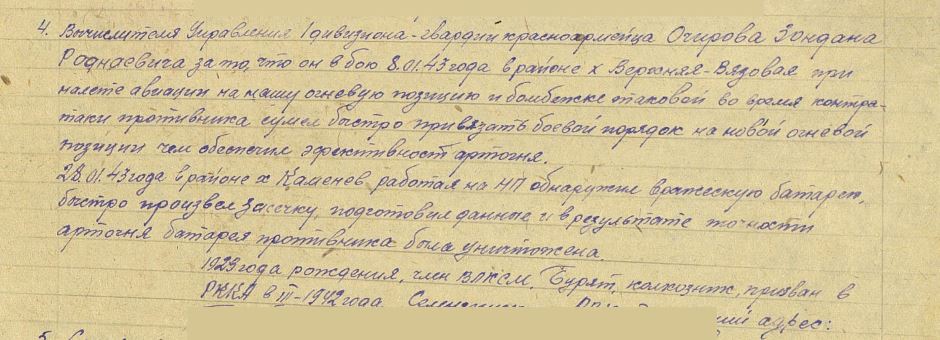 4. Вычислителя Управления 1 дивизиона - гвардии красноармейца Очирова Гондана
Роднаевича за то, что он в бою 8.01.43 года в районе х Верхняя-Вязовая при
налете авиации на нашу огневую позицию и бомбежке таковой во время контра-
таки противника сумел быстро привязать боевой порядок на новой огневой
позиции чем обеспечил эфективност артогня.
28.01.43 года в районе х Каменев, работая на НП обнаружил вражескую батарею,
быстро произвел засечку, подготовил данные и в результате точности
артогня батарея противника была уничтожена.
1923 года рождения, член ВЛКСМ, Бурят, колхозник, призван в
РККА в III-1942 года адрес: